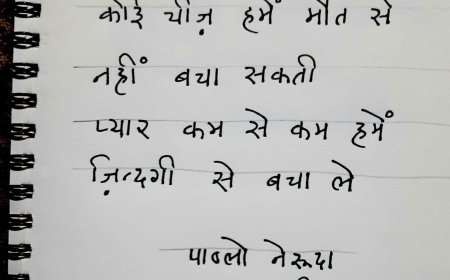 कोई चीज़ हमें मौत से
नहीं बचा सकती
प्यार कम से कम हमें
ज़िन्दगी से बचा ले
पाब्लो नेरूदा